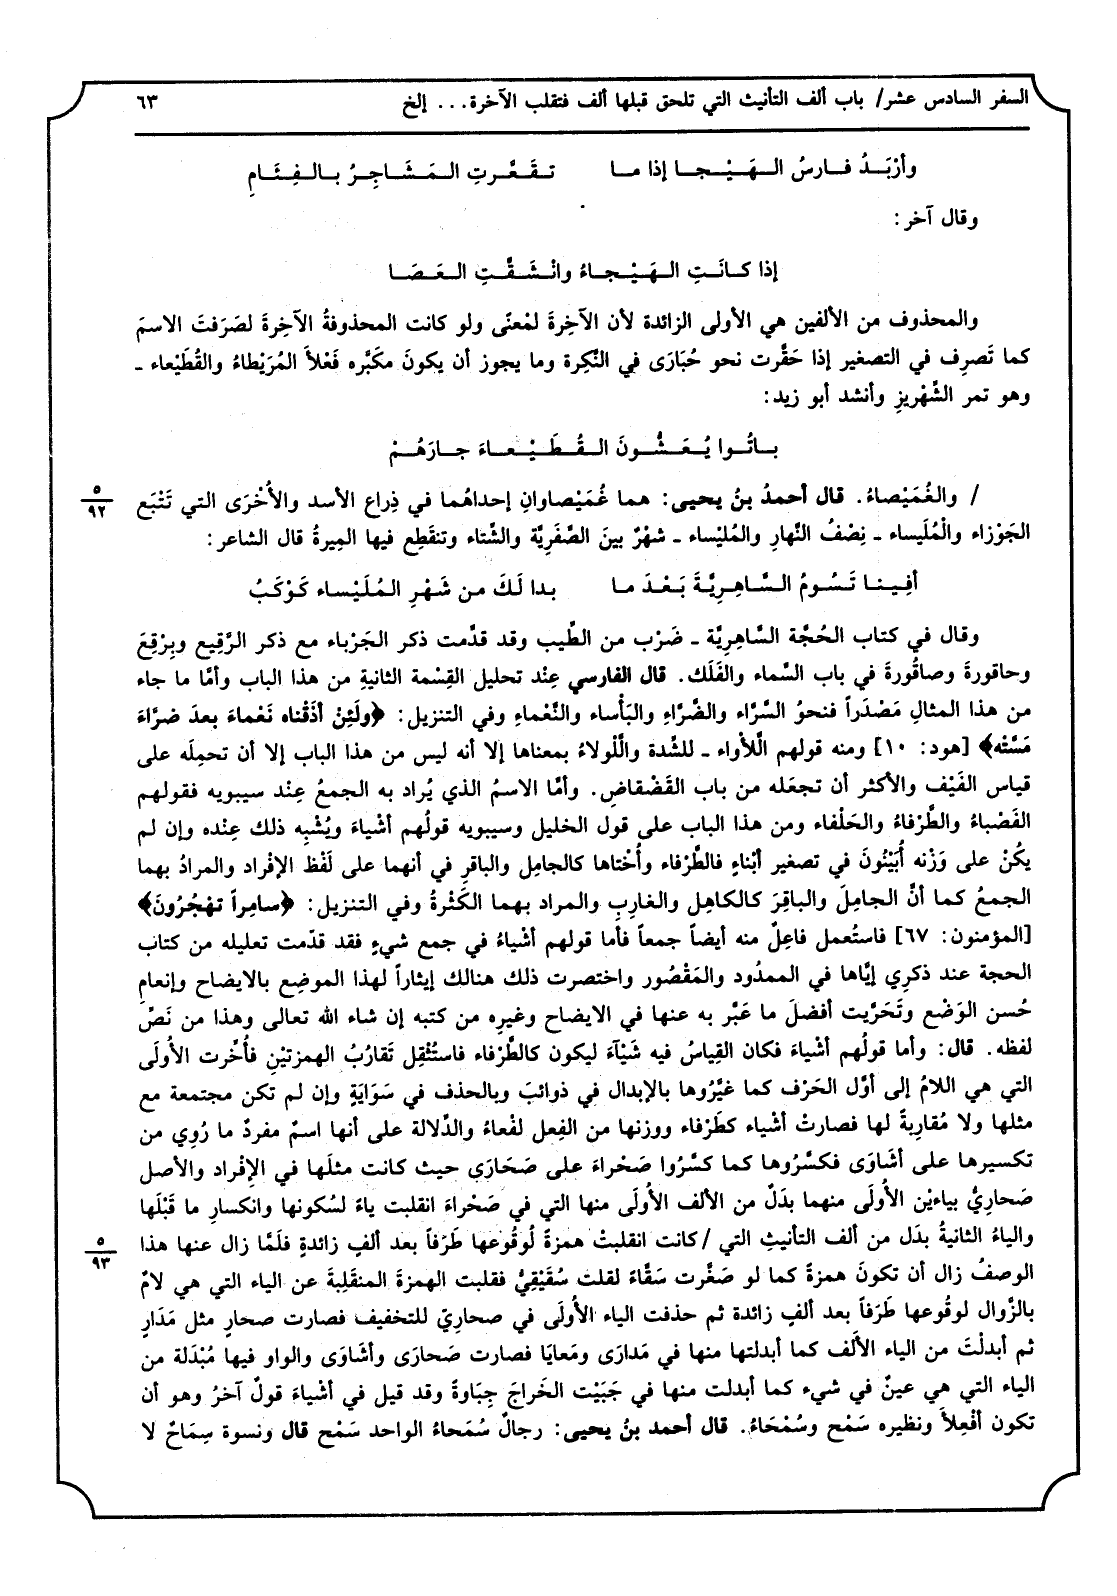 السفر السادس عشر/ باب ألف التأنيث التي تلحق قبلها ألف فتقلب الآخرة... إلخ ٦٣
وأرْبَدُ فارسُ الهَيْجا إذا ما تقَعَّرتِ المَشَاجِرُ بالفِئَامِ
وقال آخر:
إذا كانَتِ الهَيْجاءُ وانْشَقَّتِ العَصَا
والمحذوف من الألفين هي الأولى الزائدة لأن الآخِرة لمْعنًى ولو كانت المحذوفةُ الآخِرةَ لصَرَفتَ الاسمَ
كما تَصرِف في التصغير إذا حَقَّرت نحو حُبَارَى في النَّكِرة وما يجوز أن يكونَ مكَبَّره فَعْلاً المُرَيْطاءُ والقُطَيْعاء ـ
وهو تمر الشَّهْريزِ وأنشد أبو زيد:
باتُوا يُعَشُّونَ القُطَيْعاءَ جارَهُمْ
/ والغُمَيْصاءُ. قال أحمدُ بنُ يحيى: هما غُمَيْصاوانِ إحداهُما في ذِراع الأسد والأُخْرَى التي تَتْبَع
٥
٩٢
الجَوْزاء والْمُلَيساء ـ نِصْفُ النَّهارِ والمُليْساء ـ شهْرٌ بينَ الصَّفَرِيَّة والشِّتاء وتنقَطِع فيها المِيرةُ قال الشاعر:
أفِينا تَسُومُ السَّاهِرِيَّةَ بَعْدَ ما بدا لَكَ من شَهْرِ المُلَيْساء كَوْكَبُ
وقال في كتاب الحُجَّة السَّاهرِيَّة ـ ضَرْب من الطِّيب وقد قدَّمت ذكر الجَرْباء مع ذكر الرَّقِيع وبِرْقِعَ
وحاقورةَ وصاقُورةَ في باب السَّماء والفَلَك. قال الفارسي عِند تحليل القِسْمة الثانيةِ من هذا الباب وأمَّا ما جاء
من هذا المثالِ مَصْدَراً فنحوُ السَّرَّاء والضَّرَّاءِ والبَأْساء والنَّعْماءِ وفي التنزيل: ﴿ولَئِنْ أذَقْناه نَعْماءَ بعدَ ضرَّاءَ
مَسَّتْه﴾ [هود: ١٠] ومنه قولهم الَّلأواء ـ للشِّدة والَّلوْلاءُ بمعناها إلا أنه ليس من هذا الباب إلا أن تحمِلَه على
قياس الفَيْف والأكثر أن تجعَله من باب القَضْقاضِ. وأمَّا الاسمُ الذي يُراد به الجمعُ عِنْد سيبويه فقولهم
القَصْباءُ والطَّرْفاءُ والحَلْفاء ومن هذا الباب على قول الخليل وسيبويه قولُهم أشْياءَ ويُشْبِه ذلك عِنْده وإن لم
يكُنْ على وَزْنه أُبَيْنُونَ في تصغير أبْناءٍ فالطَّرْفاء وأُخْتاها كالجامِل والباقرِ في أنهما على لَفْظ الإفْراد والمرادُ بهما
الجمعُ كما أنَّ الجامِلَ والباقِرَ كالكاهِل والغارِبِ والمراد بهما الكَثْرةُ وفي التنزيل: ﴿سامِراً تهْجُرُونَ﴾
[المؤمنون: ٦٧] فاستُعمل فاعِلٌ منه أيضاً جمعاً فأما قولهم أشْياءُ في جمع شيءٍ فقد قدّمت تعليله من كتاب
الحجة عند ذكرِي إيَّاها في الممدُود والمَقْصُور واختصرت ذلك هنالك إيثاراً لهذا الموضِع بالايضاح وإنعامِ
حُسن الوَضْع وتَحَرَّيت أفضلَ ما عَبَّر به عنها في الايضاح وغيرِه من كتبه إن شاء الله تعالى وهذا من نَصِّ
لفظه. قال: وأما قولُهم أشْياءَ فكان القِياسُ فيه شَيْآءَ ليكون كالطَّرْفاء فاستُثْقِل تَقارُبُ الهمزتيْنِ فأُخِّرت الأُولَى
التي هي اللامُ إلى أوَّل الحَرْف كما غيَّرُوها بالإبدال في ذوائبَ وبالحذف في سَوَايَةٍ وإن لم تكن مجتمعة مع
مثلها ولا مُقارِبةً لها فصارتْ أشْياء كطَرْفاء ووزنها من الفِعل لفْعاءُ والدَّلالة على أنها اسمٌ مفردٌ ما رُوِي من
تكسيرها على أشَاوَى فكسَّرُوها كما كسَّرُوا صَحْراءَ على صَحَارَى حيث كانت مثلَها في الإفْراد والأصل
صَحاريُّ بياءيْن الأُولَى منهما بدَلٌ من الألف الأُولَى منها التي في صَحْراءَ انقلبت ياءً لسُكونها وانكسارِ ما قَبْلَها
والياءُ الثانيةُ بدَل من ألف التأنيثِ التي / كانت انقلبتْ همزةً لُوقُوعها طَرَفاً بعد ألفٍ زائدةٍ فلَمَّا زال عنها هذا
٥
٩٣
الوصفُ زال أن تكونَ همزةً كما لو صَغَّرت سَقَّاءً لقلت سُقَيْقِيُّ فقلبت الهمزةَ المنقلِبةَ عن الياء التي هي لامٌ
بالزَّوال لوقُوعها طَرَفاً بعد ألفٍ زائدة ثم حذفت الياء الأُولَى في صحارِيّ للتخفيف فصارت صحارٍ مثل مَدَارٍ
ثم أبدلْتَ من الياء الألَف كما أبدلتها منها في مَدارَى ومَعايَا فصارت صَحارَى وأشَاوَى والواو فيها مُبْدَلة من
الياء التي هي عينٌ في شيء كما أبدلت منها في جَبَيْت الخَراجَ جِبَاوةً وقد قيل في أشْياءَ قولٌ آخرُ وهو أن
تكون أفْعِلاَ ونظيره سَمْح وسُمْحَاءُ. قال أحمد بنُ يحيى: رجالٌ سُمَحاءُ الواحد سَمْح قال ونسوة سِمَاحٌ لا